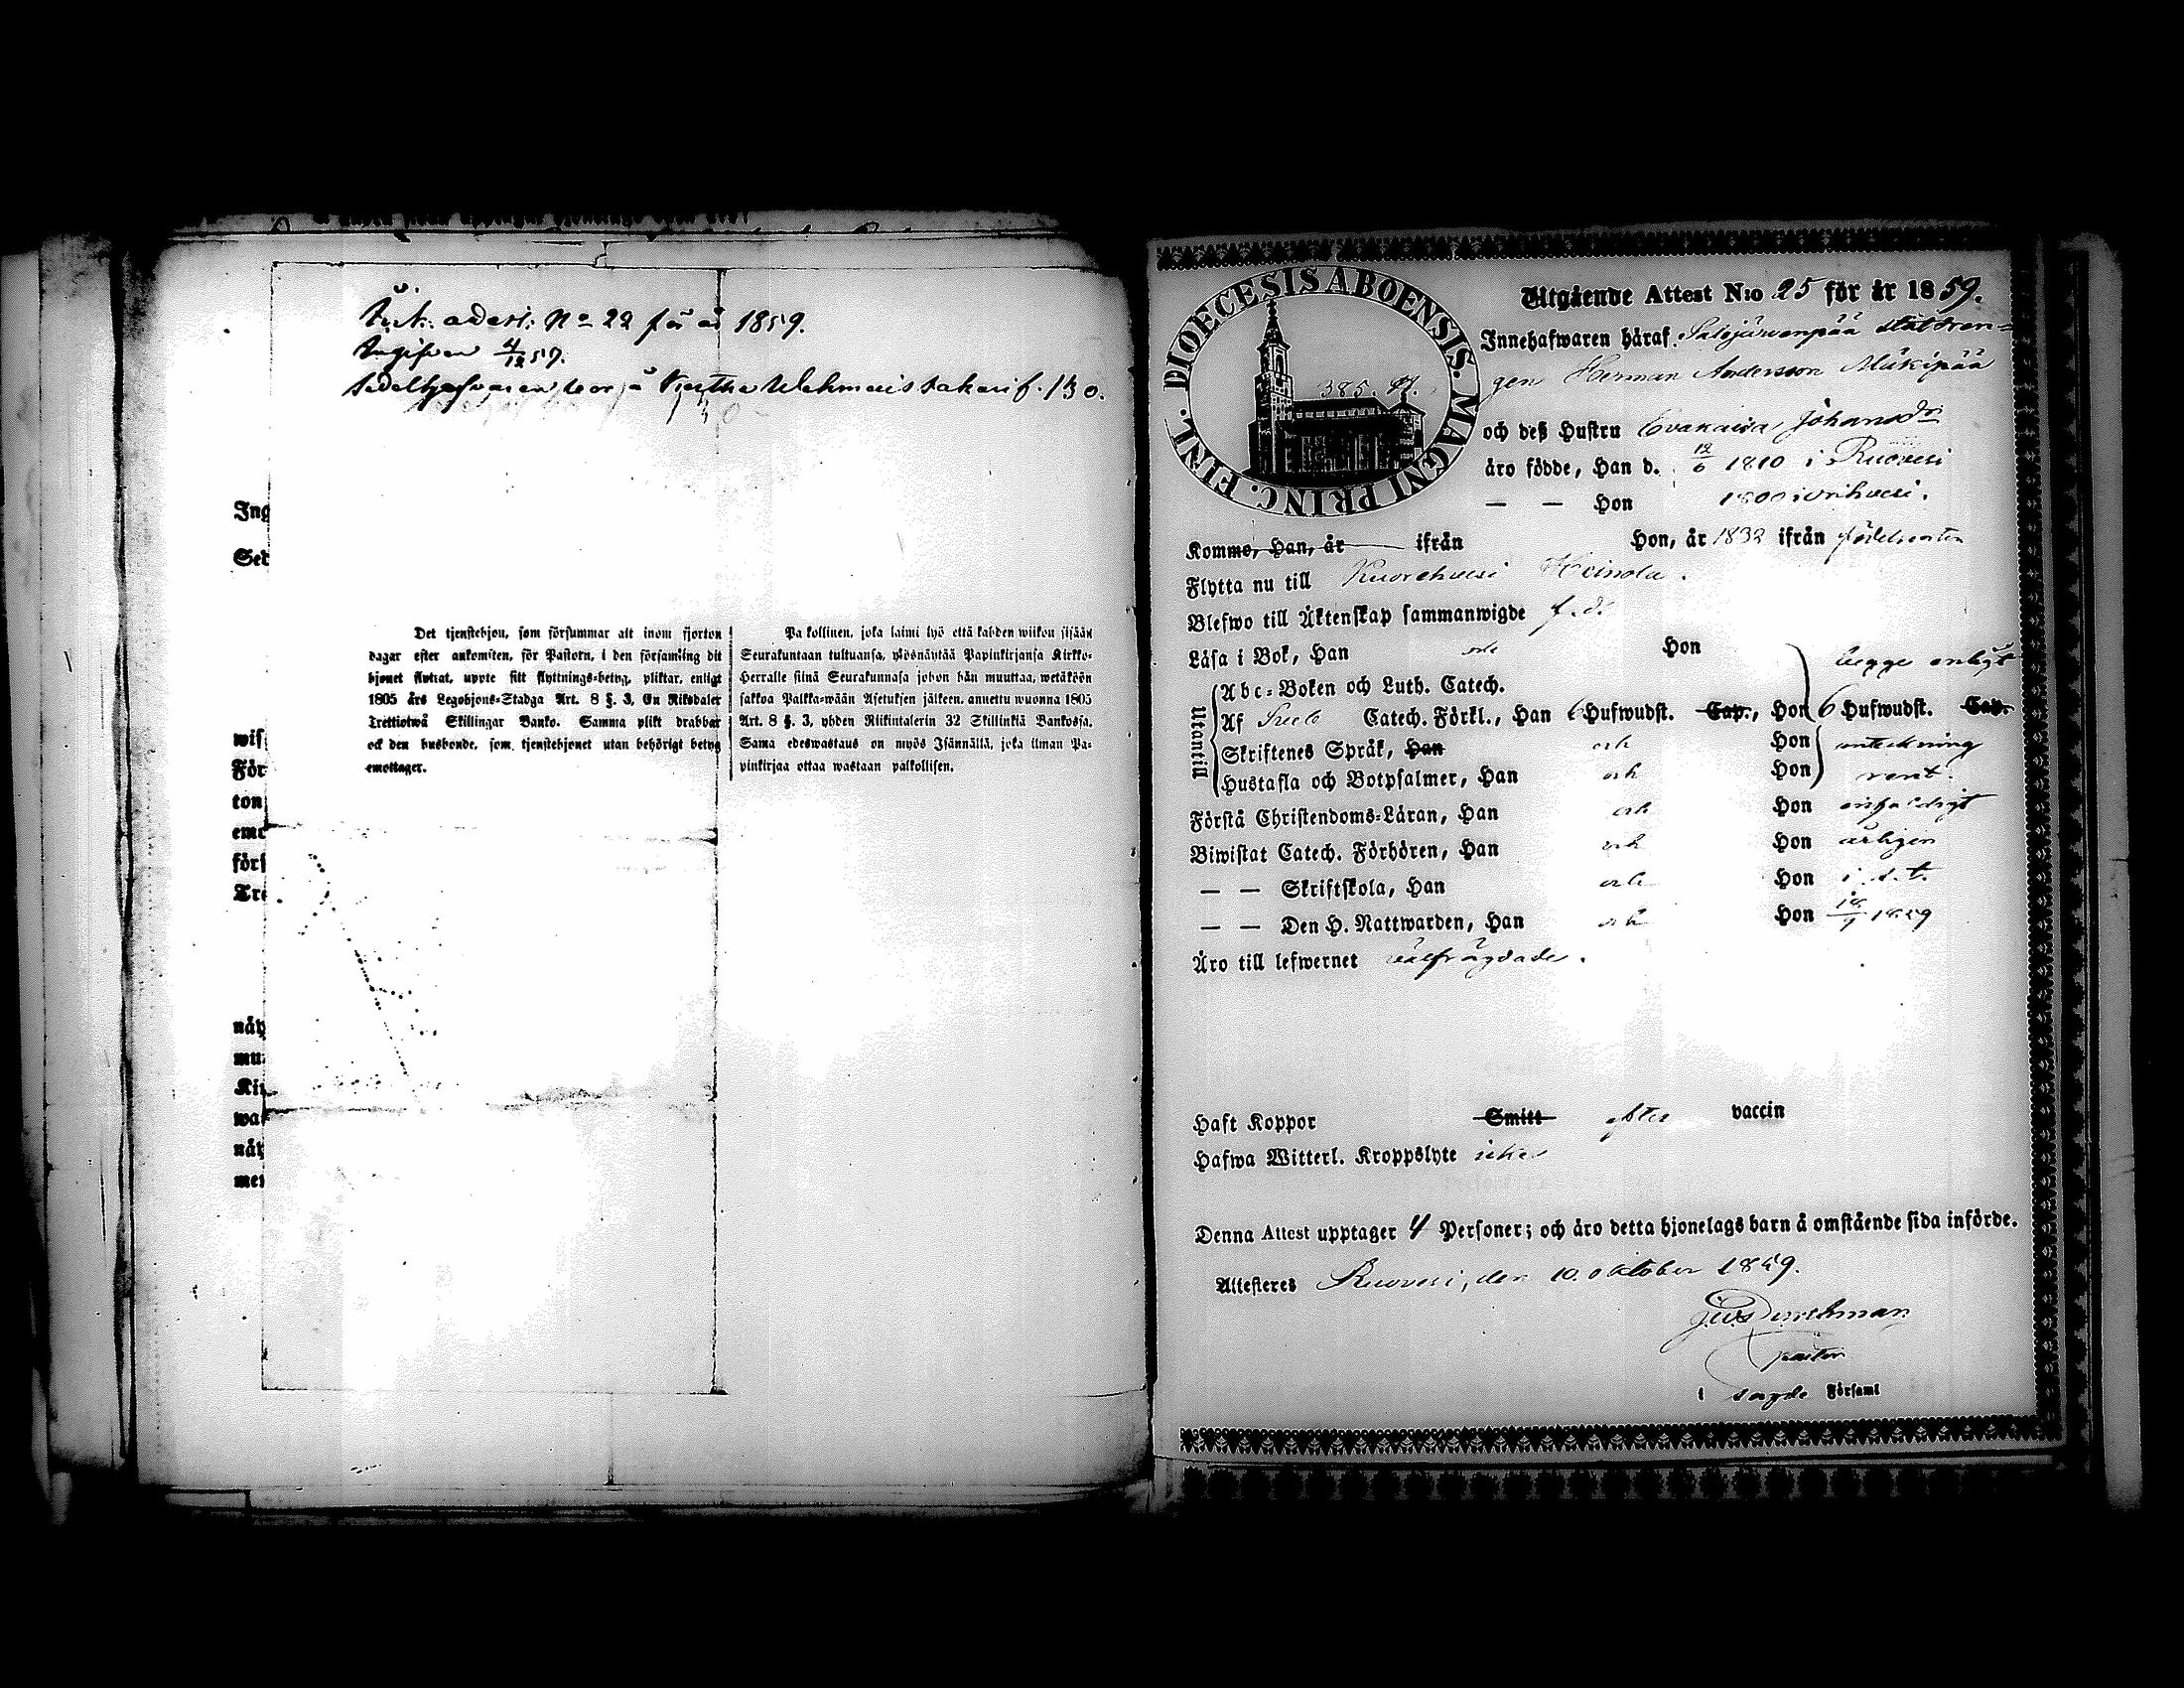 Ink. adess: No 22 för år 1859.
Ingifven 4/12 59.
Sedelhafvaren bor på f. 130.
Ing
Sed
Det tjenstehjon, som försummar att inom fjorton
dagar efter ankomsten, för Pastorn, i den församling dit
hjonet flyttat, uppte sitt flyttnings-betyg, pliktar, enligt
1805 års Legohjons-Stadga Art. 8 §. 3, En Riksdaler
Trettiotwå Skillingar Banko. Samma plikt drabbar
ock den husbonde, som tjenstehjonet utan behörigt betyg
emottager.
Pa kollinen, joka laimi lyö että kahden wiikon sisään
Seurakuntaan tultuansa, ylösnäytää Papinkirjansa Kirkko-
Herralle siinä Seurakunnasa johon hän muuttaa, wetäköön
sakkoa Palkka-wään Asetuksen jälkeen, annettu wuonna 1805
Art. 8 §. 3, yhden Riikintalerin 32 Skillinkiä Bankosja.
Sama edeswastaus on myös Isännällä, joka ilman Pa-
pinkirjaa ottaa wastaan palkollisen.
wis
För
ton
emo
förs
Tre
näy
mu
Ki
wa
näy
me
DIOECESIS ABOENSIS. MAGNI PRINC. FINL.
385.
Utgående Attest N:o 25 för år 1859.
Innehafwaren häraf Salojärwenpää statdren-
gen Herman Andersson Mäkipää
och deß Hustru Evakaisa Johansdr
äro födde, Han d. 12/6 1810 i Ruovesi
— — Hon 1800 i
Kommo, Han, år ifrån Hon, år 1832 ifrån födelseorten
Flytta nu till Kuorehvesi Heinola.
Blefwo till Äktenskap sammanwigde f. d.
Läsa i Bok, Han och Hon begge enligt
Abc-Boken och Luth. Catech.
Utantill
Af Sveb Catech. Förkl., Han 6 Hufwudst. Cap., Hon 6 Hufwudst. Cap.
Skriftenes Språk, Han och Hon anteckning
Hustafla och Botpsalmer, Han och Hon
Förstå Christendoms-Läran, Han och Hon enfaldigt
Biwistat Catech. Förhören, Han och Hon årligen
— — Skriftskola, Han och Hon i s. t.
— — Den H. Nattwarden, Han och Hon 18/9 1859
Äro till lefwernet välfrägdade.
Haft Koppor Smitt efter vaccin
Hafwa Witterl. Kroppslyte icke
Denna Attest upptager 4 Personer; och äro detta hjonelags barn å omstående sida införde.
Attesteres Ruovesi, den 10. oktober 1859.
pastor
i sagde Församl